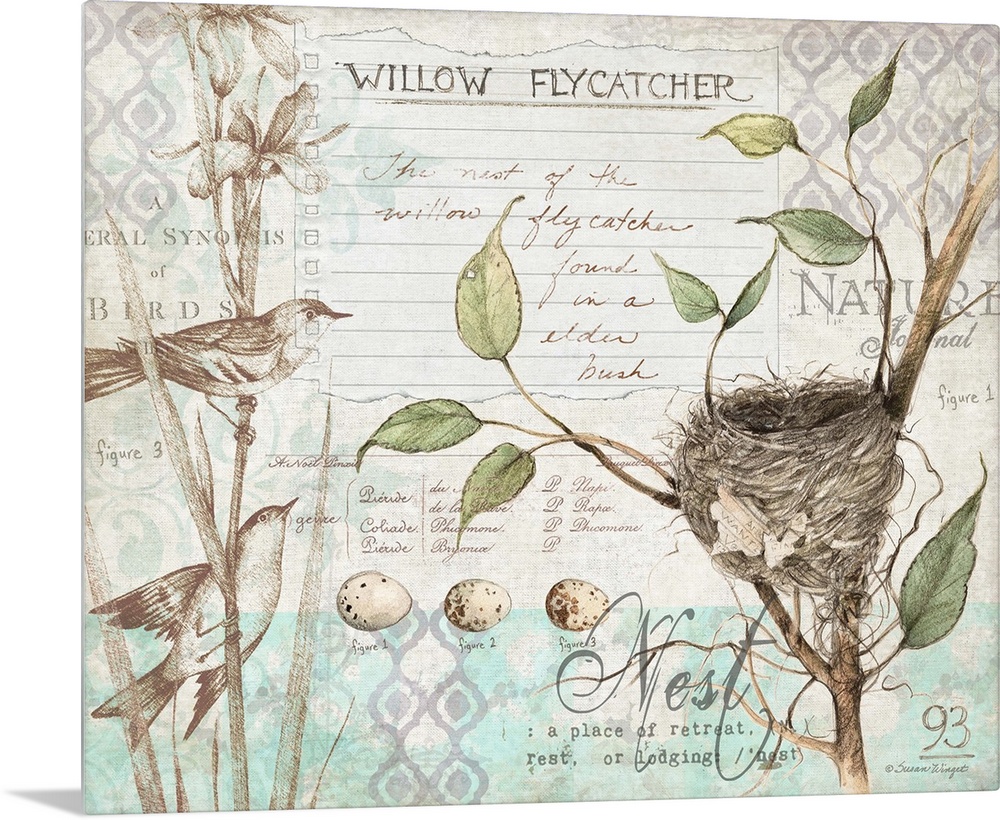 WILLOW FLYCATCHER
The nest of the
willow flycatcher
found
in a
elder
bush
A
ERAL SYNOPSIS
of
BIRDS
NATURE
Journal
figure 1
figure 3
A. Noel Pinxit
genre
Piéride du Napi. P Napi.
de la P Rapæ.
Coliade. Phicomone. P Phicomone.
Piéride Bryoniæ P
figure 1 figure 2 figure 3
Nest
: a place of retreat,
rest, or lodging: /'nest
93
© Susan Winget